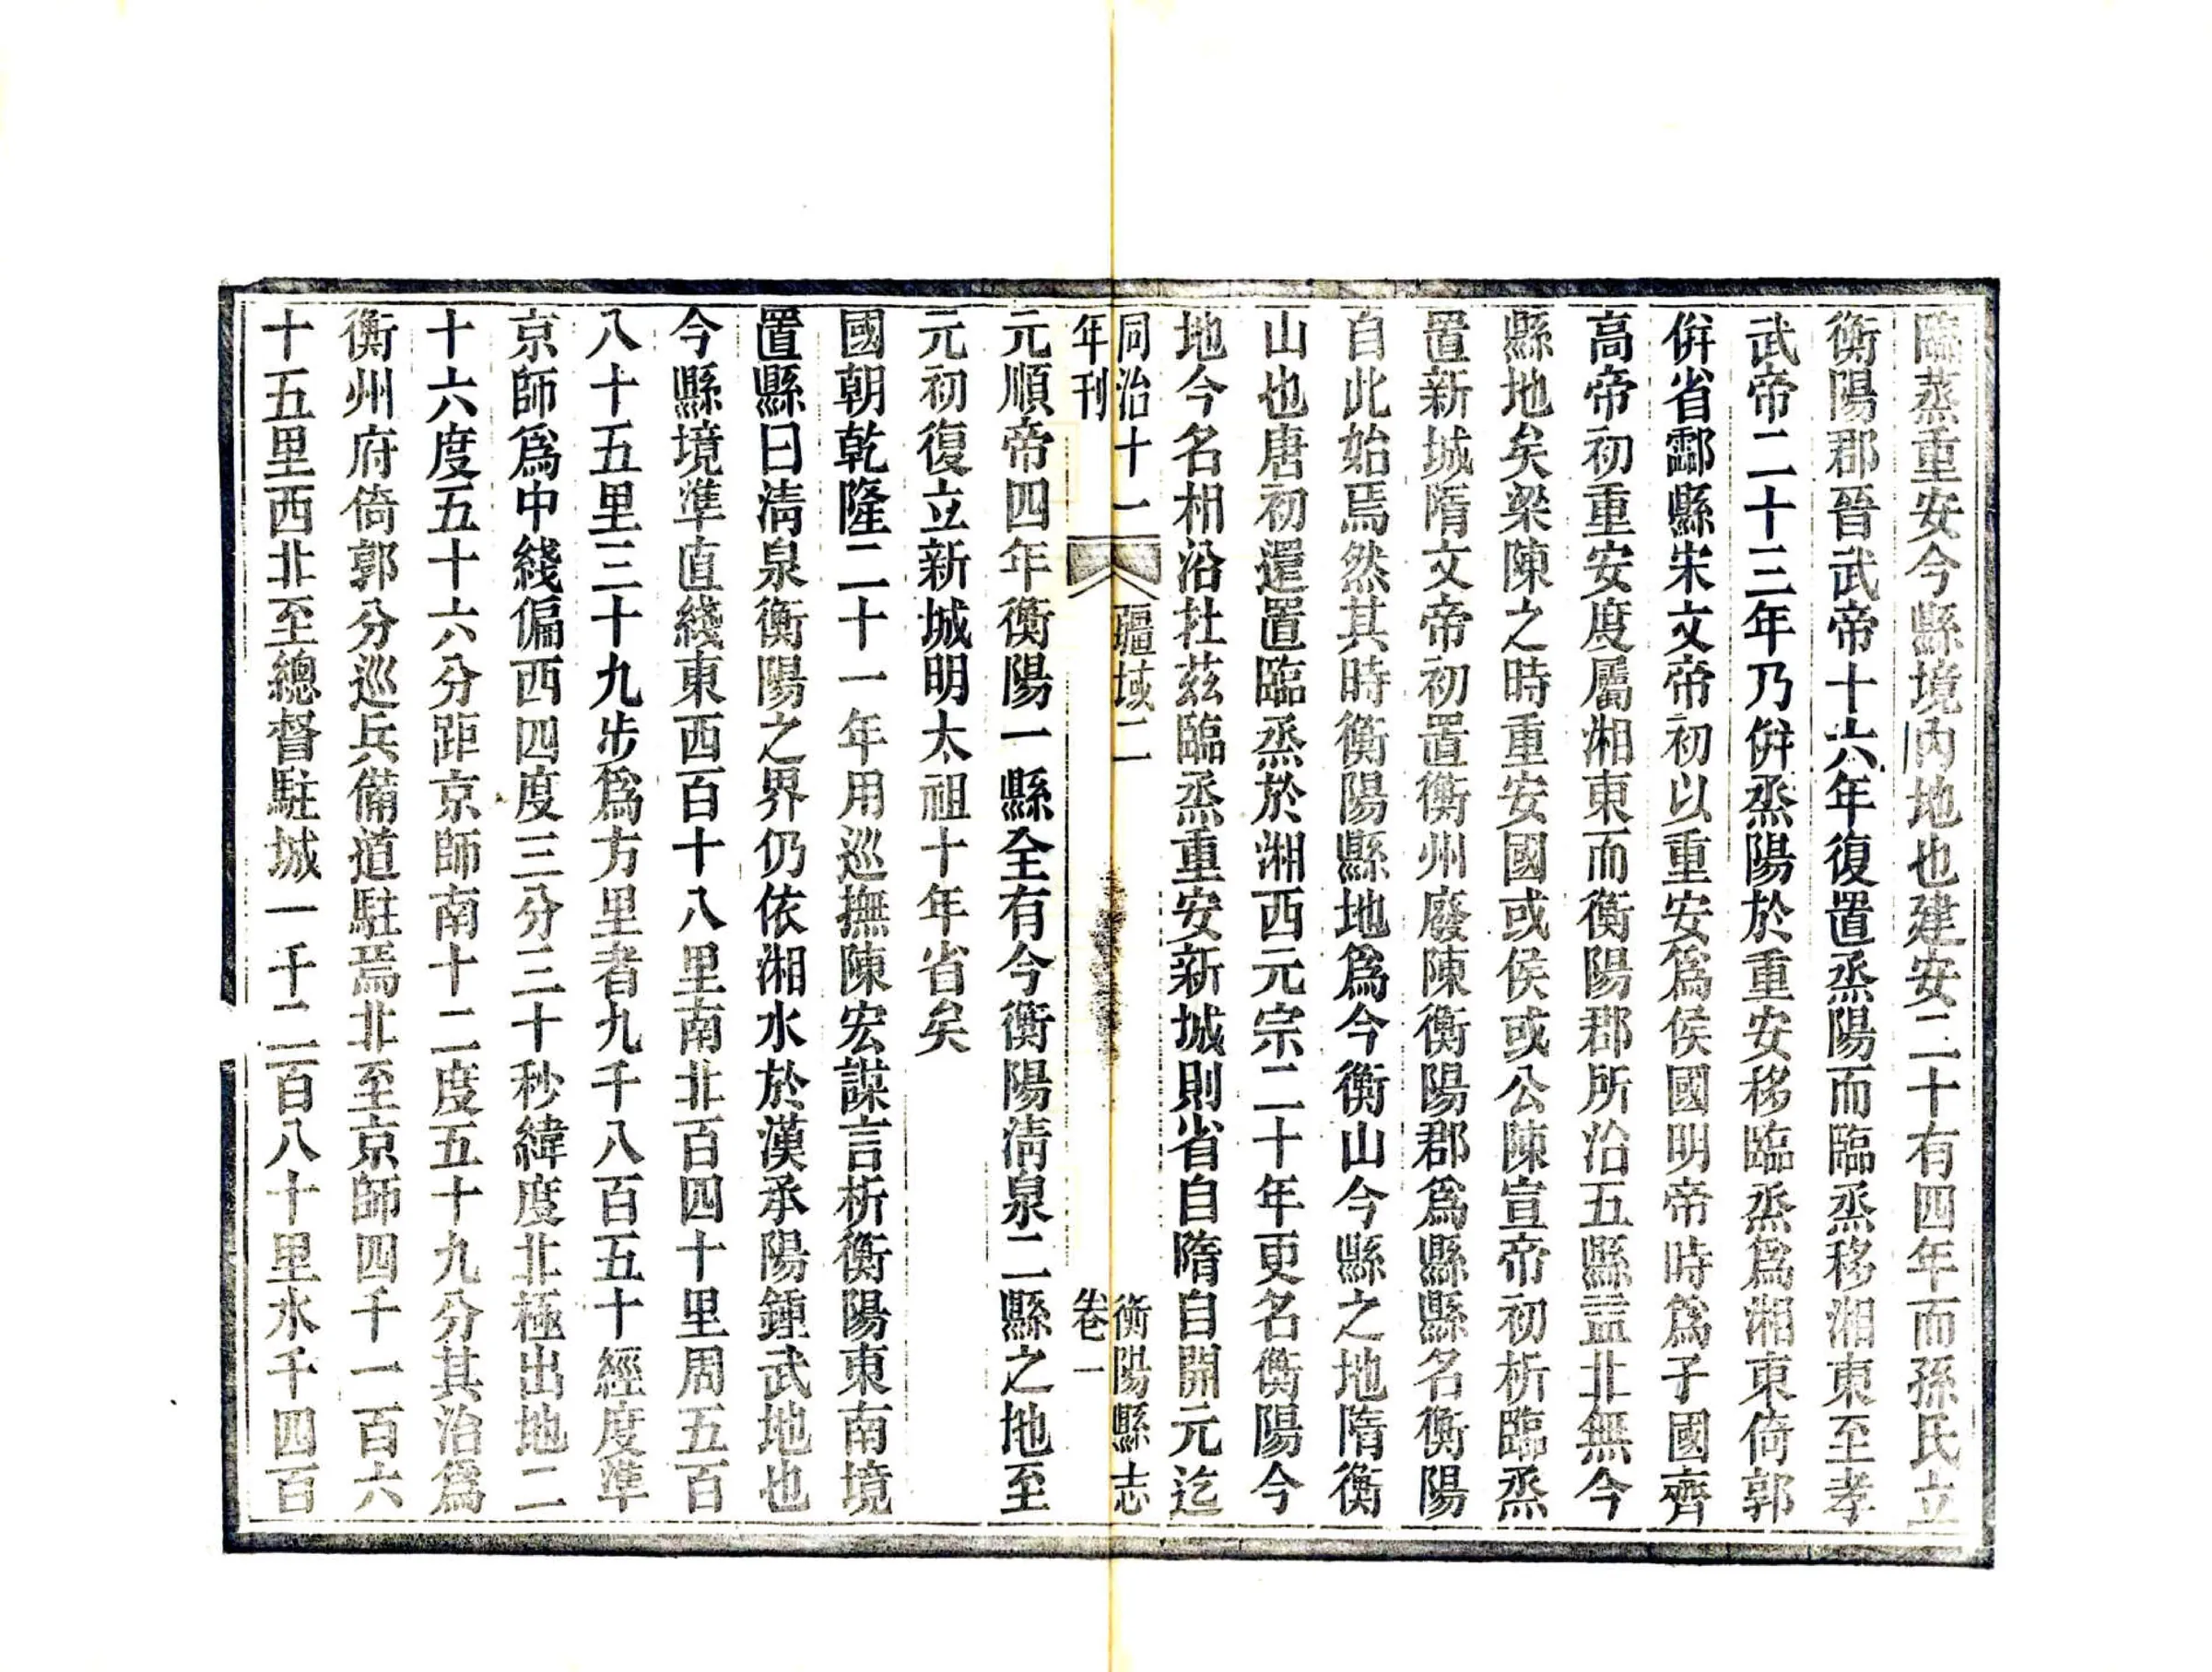 臨蒸重安今縣境內地也建安二十有四年而孫氏立
衡陽郡晉武帝十六年復置烝陽而臨烝移湘東至孝
武帝二十三年乃併烝陽於重安移臨烝爲湘東倚郭
併省酃縣宋文帝初以重安爲侯國明帝時爲子國齊
高帝初重安度屬湘東而衡陽郡所治五縣並北無今
縣地矣梁陳之時重安國或侯或公陳宣帝初析臨烝
置新城隋文帝初置衡州廢陳衡陽郡爲縣縣名衡陽
自此始焉然其時衡陽縣地爲今衡山今縣之地隋衡
山也唐初還置臨烝於湘西元宗二十年更名衡陽今
地今名相沿社茲臨烝重安新城則省自隋自開元迄
同治十一
年刊
疆域二
衡陽縣志
卷一
元順帝四年衡陽一縣全有今衡陽清泉二縣之地至
元初復立新城明太祖十年省矣
國朝乾隆二十一年用巡撫陳宏謀言析衡陽東南境
置縣曰清泉衡陽之界仍依湘水於漢承陽鍾武地也
今縣境準直綫東西百十八里南北百四十里周五百
八十五里三十九步爲方里者九千八百五十經度準
京師爲中綫偏西四度三分三十秒緯度北極出地二
十六度五十六分距京師南十二度五十九分其治爲
衡州府倚郭分巡兵備道駐焉北至京師四千一百六
十五里西北至總督駐城一千二百八十里水千四百